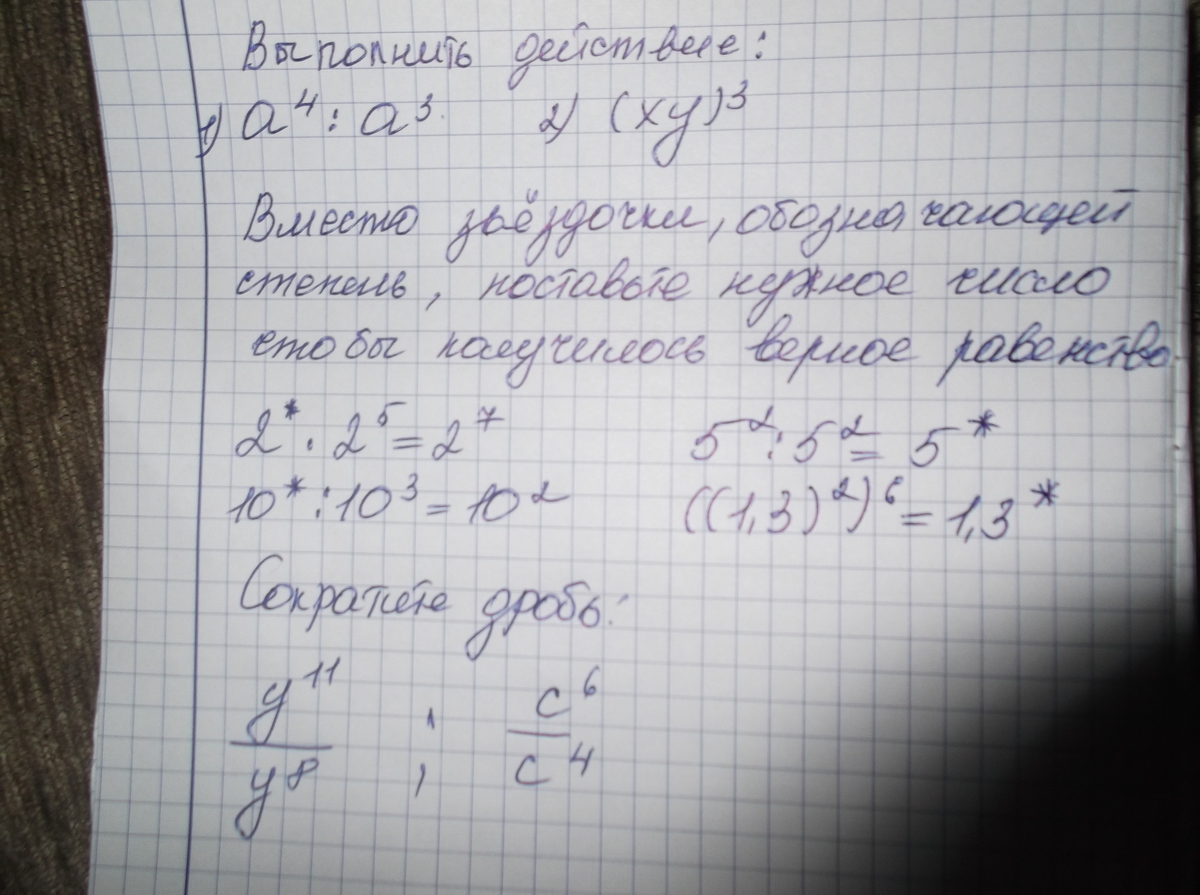 Выполнить действие:
1) a⁴ : a³. 2) (xy)³
Вместо звёздочки, обозначающей
степень, поставьте нужное число
чтобы получилось верное равенство
2* · 2⁵ = 2⁷ 5² : 5² = 5*
10* : 10³ = 10² ((1,3)²)⁶ = 1,3*
Сократите дробь:
y¹¹/y⁸ ; c⁶/c⁴